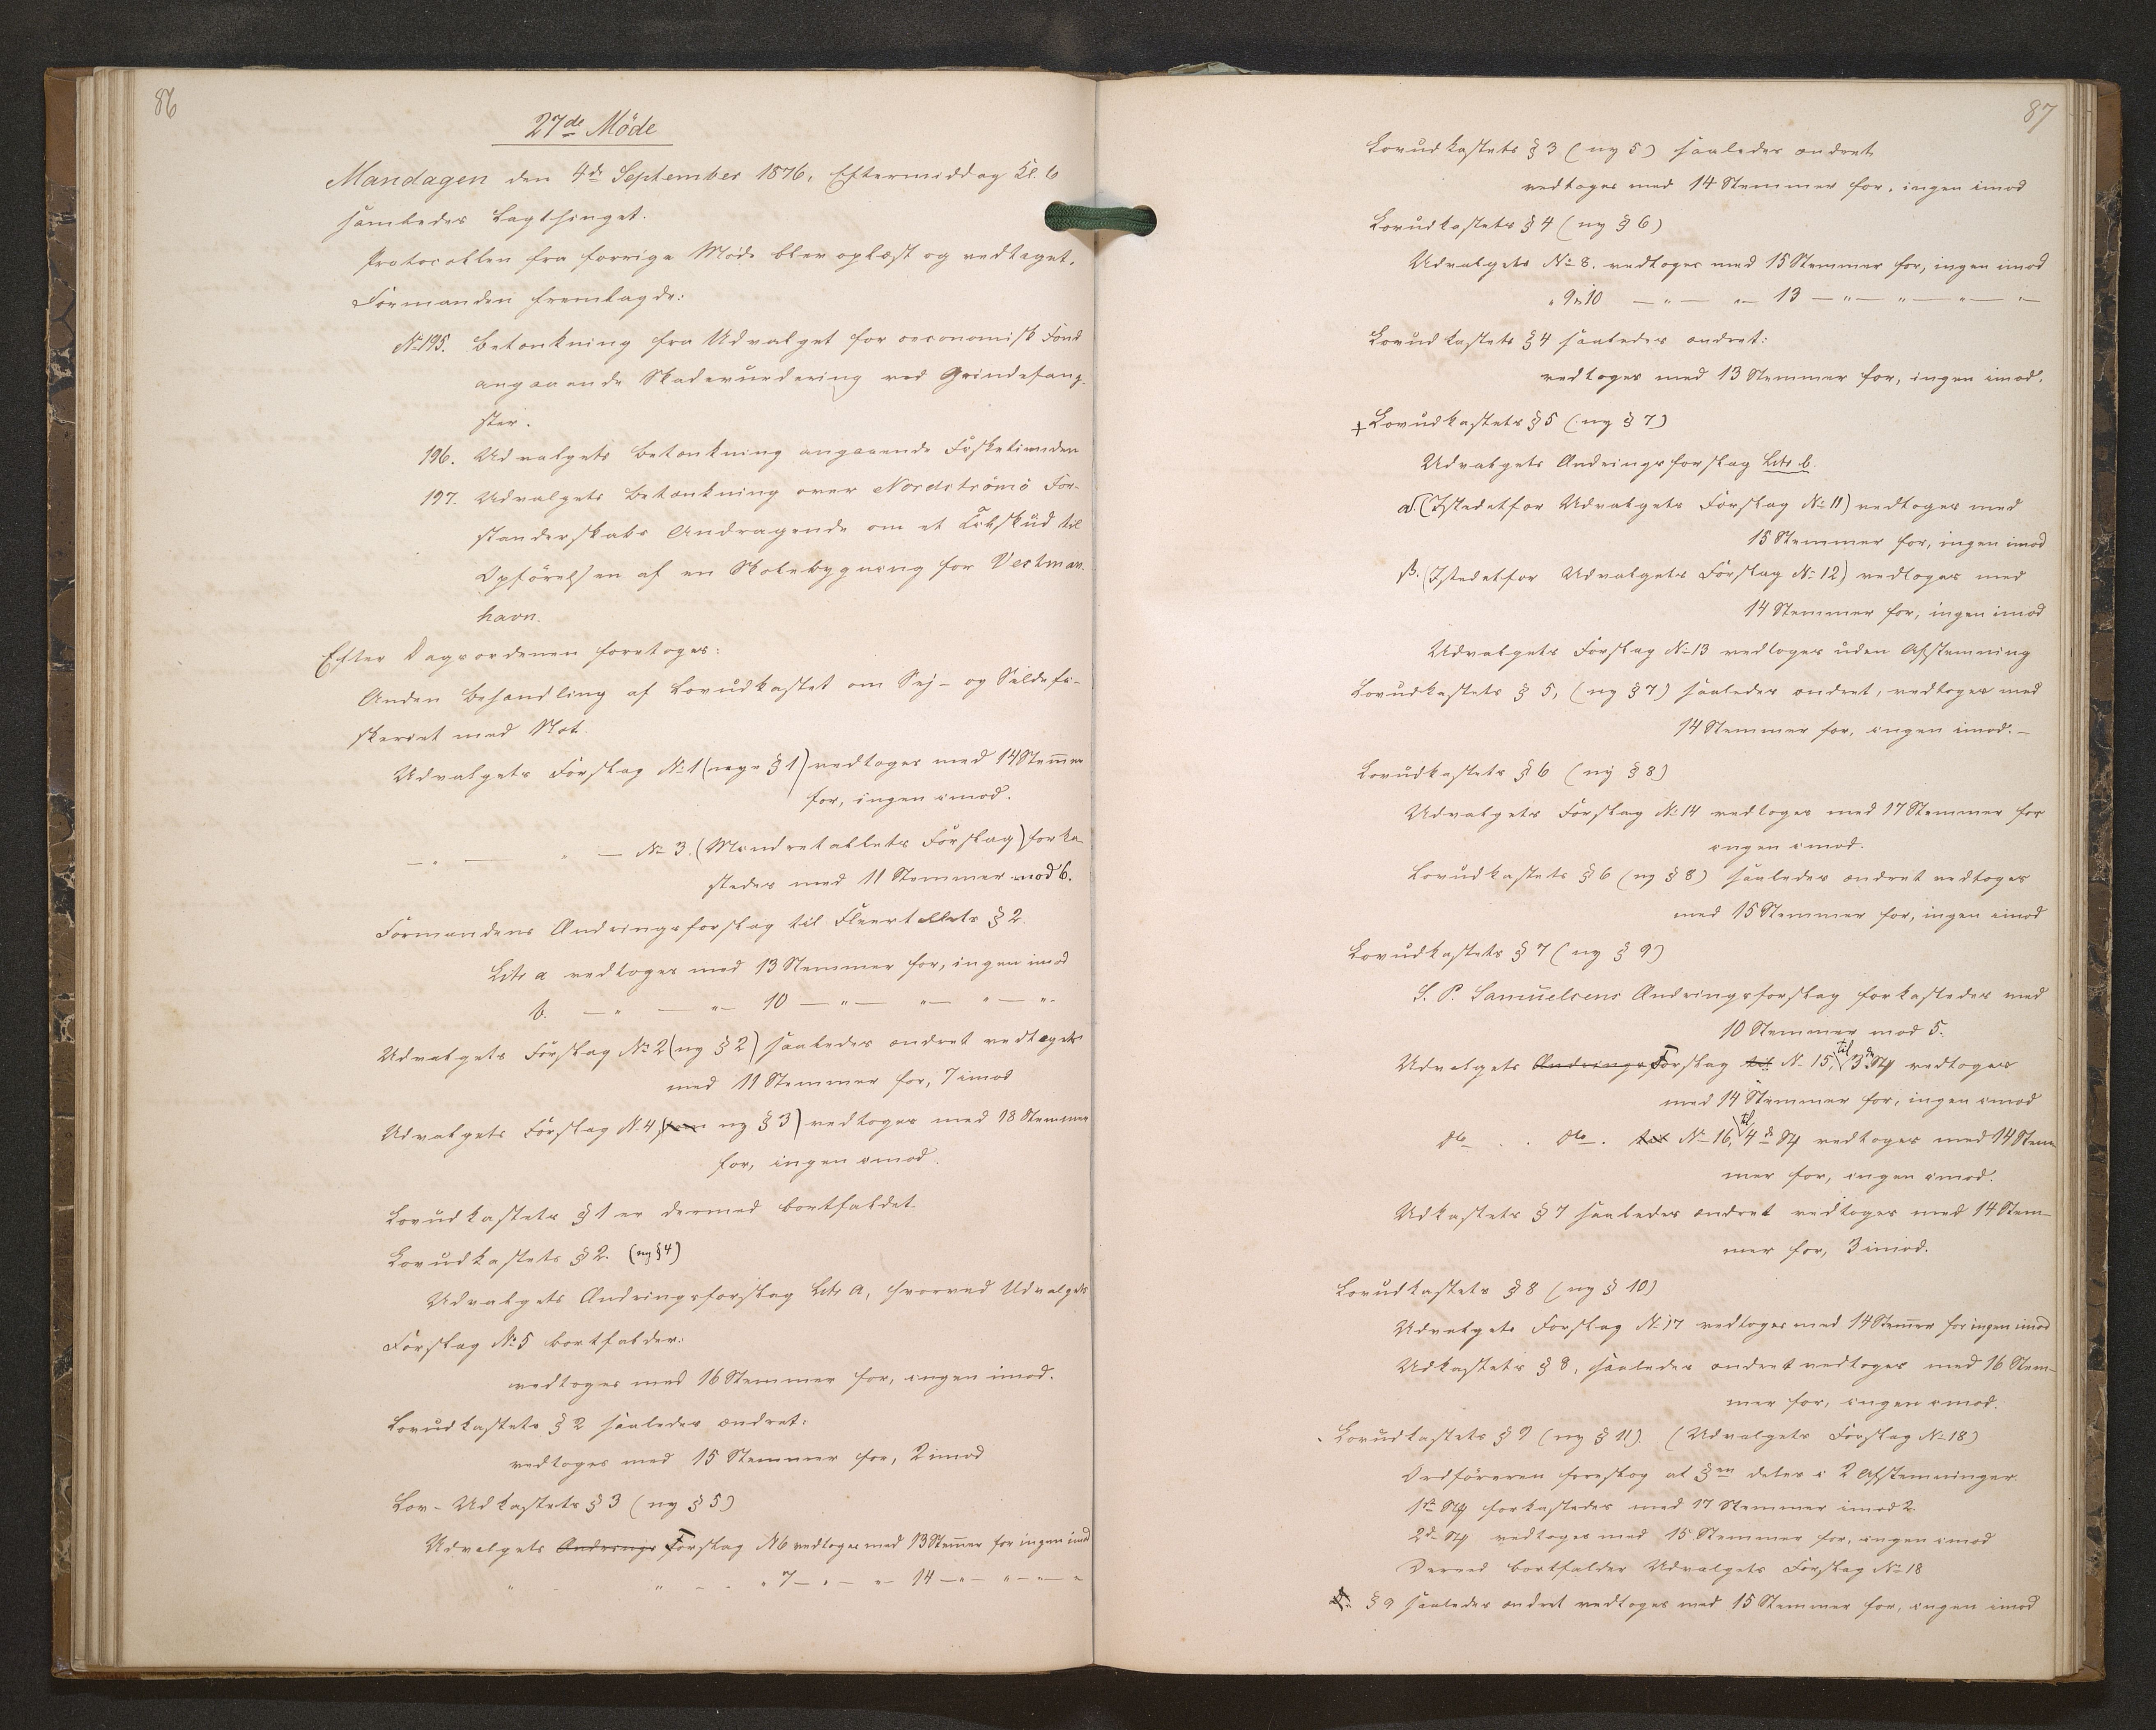 86
27de Möde
Mandagen den 4de September 1876, Eftermiddag Kl. 6
samledes Lagthinget.
Protocollen fra forrige Möde blev oplæst og vedtaget.
Formanden fremlagde:
No 195. Betænkning fra Udvalget for oeconomisk Fond
angaaende Skadevurdering ved Grindefang-
ster.
196. Udvalgets Betænkning angaaende Fisketienden
197. Udvalgets Betænkning over Nordströmö For-
standerskabs Andragende om et Tilskud til
Opförelsen af en Skolebygning for Vestman-
havn.
Efter Dagsordenen foretoges:
Anden Behandling af Lovudkastet om Sej- og Sildefi-
skeriet med Not.
Udvalgets Forslag No 1 (nye § 1) vedtoges med 14 Stemmer
for, ingen imod.
— " — " — No 3. (Mindretallets Forslag) forka-
stedes med 11 Stemmer mod 6.
Formandens Ændringsforslag til Fleertallets § 2.
Litr a vedtoges med 13 Stemmer for, ingen imod
b. — " — "— 10 — "— "— " — "-
Udvalgets Forslag No 2 (ny § 2) saaledes ændret vedtoges
med 11 Stemmer for, 7 imod
Udvalgets Forslag N. 4 (ny § 3) vedtoges med 18 Stemmer
for, ingen imod.
Lovudkastets § 1 er dermed bortfaldet
Lovudkastets § 2. (ny § 4)
Udvalgets Ændringsforslag Litr a, hvorved Udvalgets
Forslag No 5 bortfalder:
vedtoges med 16 Stemmer for, ingen imod.
Lovudkastets § 2 saaledes ændret:
vedtoges med 15 Stemmer for, 2 imod
Lov-Udkastets § 3 (ny § 5)
Udvalgets Ændrings Forslag N 6 vedtoges med 13 Stemmer for ingen imod
" " - - " 7 — " — "— 14 —"— "—"— "
87
Lovudkastets § 3 (ny 5) saaledes ændret
vedtoges med 14 Stemmer for, ingen imod
Lovudkastets § 4 (ny § 6)
Udvalgets No 8. vedtoges med 15 Stemmer for, ingen imod
" 9 & 10 — " — "— 13 — "— " — " — "—
Lovudkastets § 4 saaledes ændret:
vedtoges med 13 Stemmer for, ingen imod.
+ Lovudkastets § 5 (ny § 7)
Udvalgets Ændringsforslag Litr b.
α. (Istedetfor Udvalgets Forslag No 11) vedtoges med
15 Stemmer for, ingen imod
β. (Istedetfor Udvalgets Forslag No 12) vedtoges med
14 Stemmer for, ingen imod
Udvalgets Forslag No 13 vedtoges uden Afstemning
Lovudkastets § 5, (ny § 7) saaledes ændret, vedtoges med
14 Stemmer for, ingen imod. —
Lovudkastets § 6 (ny § 8)
Udvalgets Forslag No 14 vedtoges med 17 Stemmer for
ingen imod.
Lovudkastets § 6 (ny § 8) saaledes ændret vedtoges
med 15 Stemmer for, ingen imod
Lovudkastets § 7 (ny § 9)
S. P. Samuelsens Ændringsforslag forkastedes med
10 Stemmer mod 5.
Udvalgets Ændrings Forslag til N. 15, til 3de Sty vedtoges
med 14 Stemmer for, ingen imod
do . . do . til No 16, til 4de Sty vedtoges med 14 Stem-
mer for, ingen imod.
Udkastets § 7 saaledes ændret vedtoges med 14 Stem-
mer for, 3 imod.
Lovudkastets § 8 (ny § 10)
Udvalgets Forslag No 17 vedtoges med 14 Stemmer for ingen imod
Udkastets § 8, saaledes ændret vedtoges med 16 Stem-
mer for, ingen imod.
Lovudkastets § 9 (ny § 11). (Udvalgets Forslag No 18)
Ordföreren foreslog at §en deles i 2 Afstemninger.
1ste Sty forkastedes med 17 Stemmer imod 2.
2de Sty vedtoges med 15 Stemmer for, ingen imod
Derved bortfalder Udvalgets Forslag No 18
§ 9 saaledes ændret vedtoges med 15 Stemmer for, ingen imod